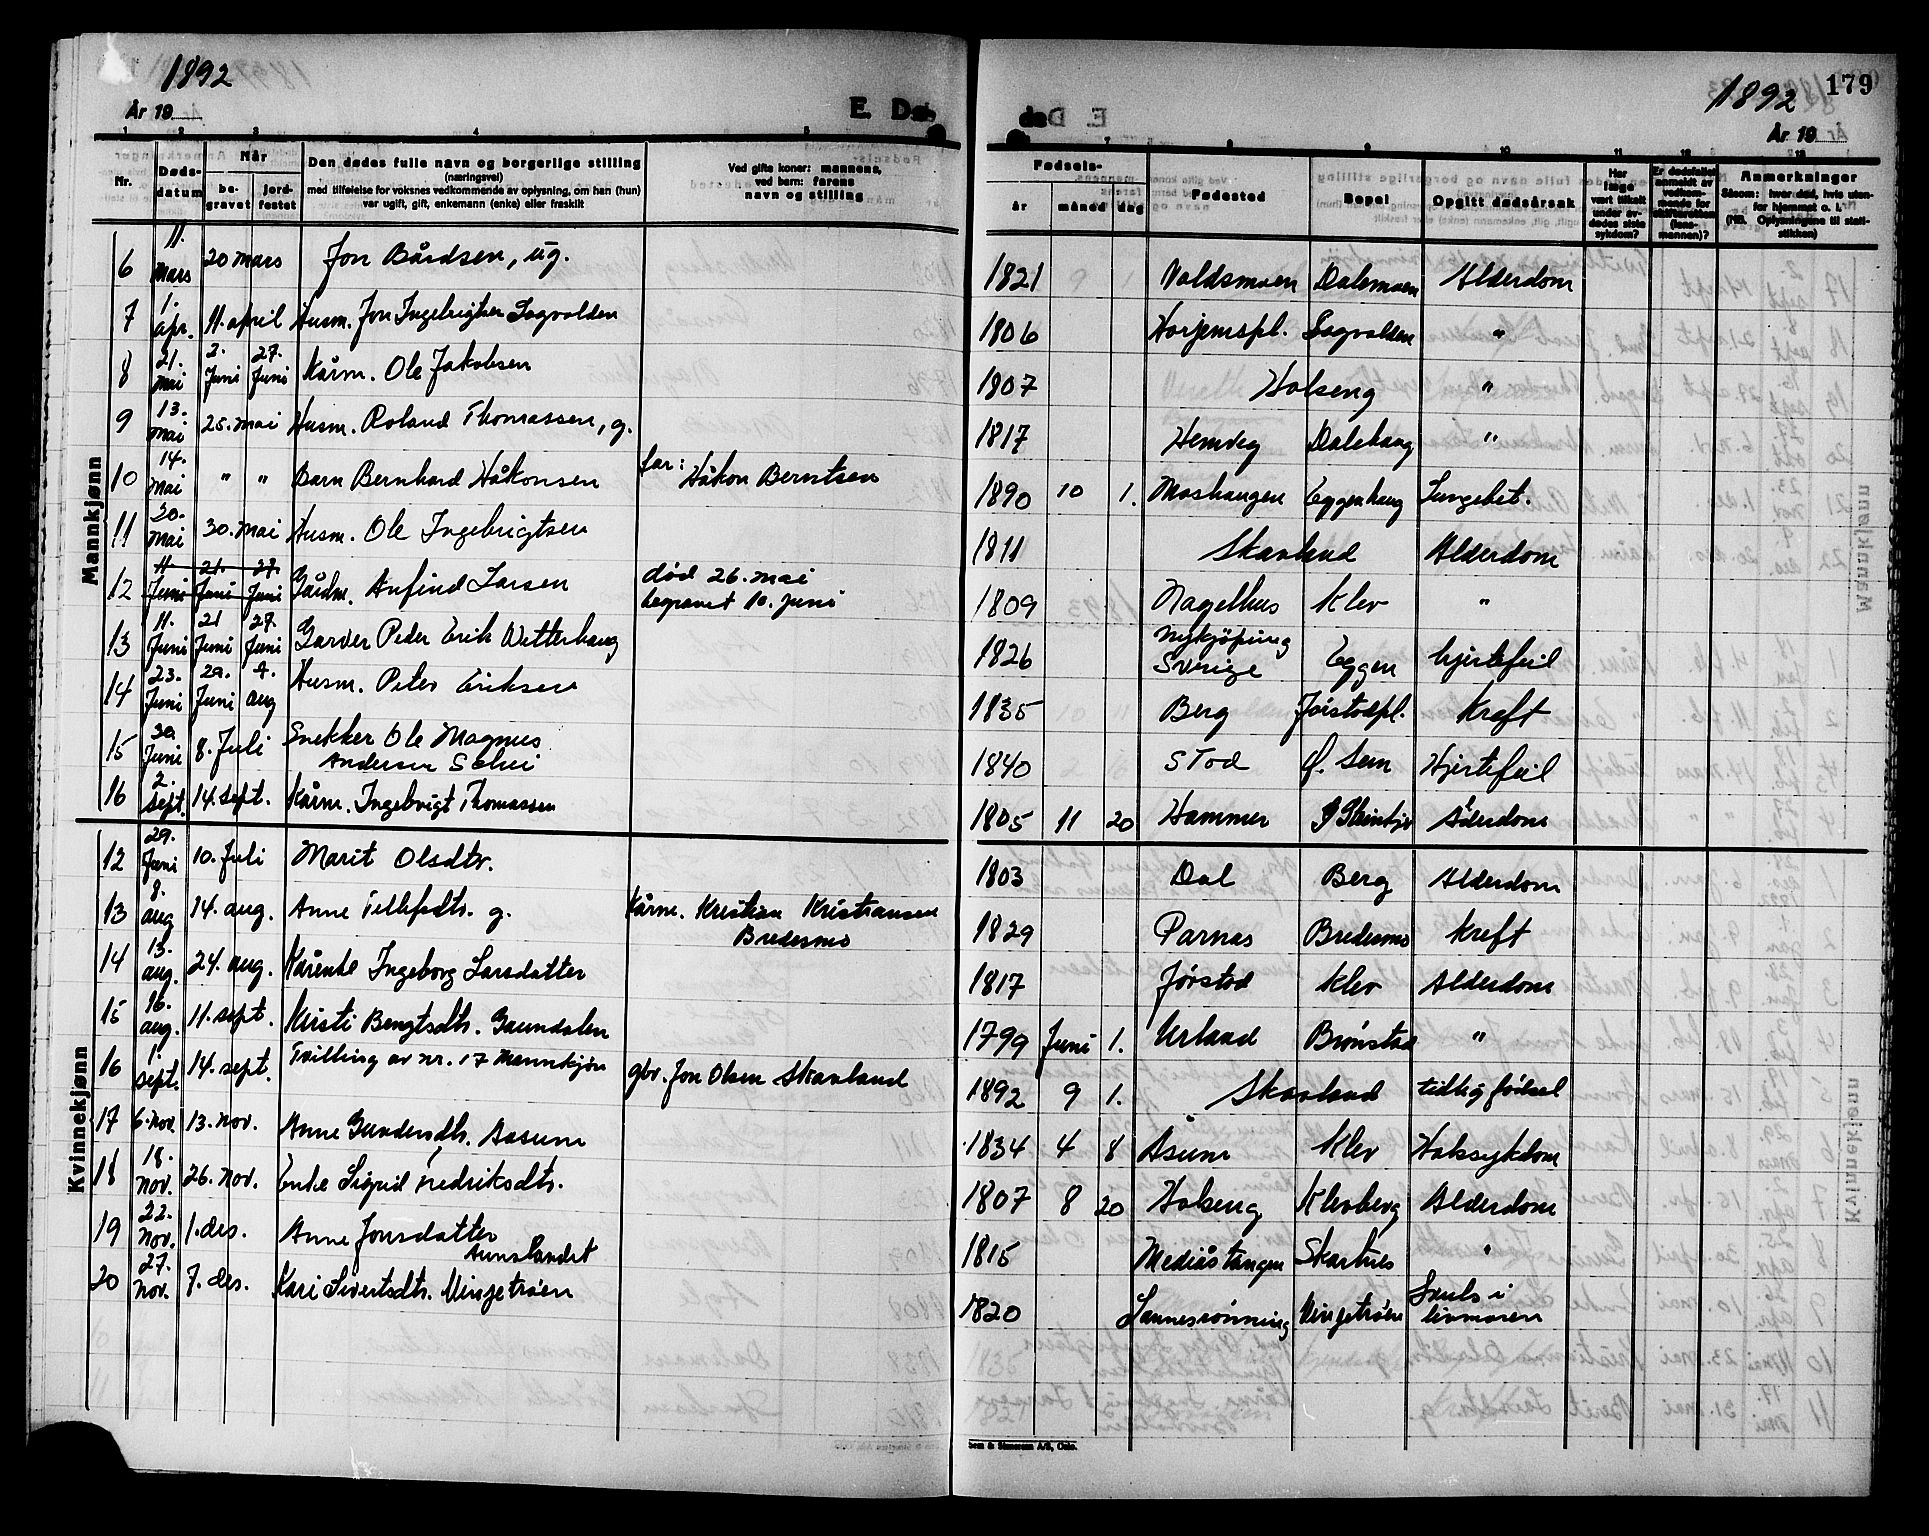 1892
År 19
E. Dø-
1 2 3 4 5
Nr.
Døds-
datum
Når
be-
gravet
jord-
festet
Den dødes fulle navn og borgerlige stilling
(næringsvei)
med tilføielse for voksnes vedkommende av oplysning, om han (hun)
var ugift, gift, enkemann (enke) eller fraskilt
Ved gifte koner: mannens,
ved barn: farens
navn og stilling
Mannkjønn
6 11. mars 20 mars Jon Bårdsen, ug.
7 1. apr. 11. april Husm. Jon Ingebrigtsen Sagvolden
8 21. mai 2. Juni 27. Juni Kårm. Ole Jakobsen
9 13. mai 25. mai Husm. Roland Thomassen, g.
10 14. mai " " Barn Bernhard Håkonsen far: Håkon Berntsen
11 20. mai 30. mai Husm. Ole Ingebrigtsen
12 11 Juni 21. Juni 27. Juni Gårdm. Anfind Larsen død 26. mai
begravet 10. juni
13 11. Juni 21 Juni 27. Juni Garver Peder Erik Wetterhaug
14 23. Juni 29. Juni 7. aug Husm. Peter Eriksen
15 30. Juni 8. Juli Snekker Ole Magnus
Andersen Schei
16 2. sept. 14. sept. Kårm. Ingebrigt Thomassen
Kvinnekjønn
12 29. Juni 10. Juli Marit Olsdtr.
13 8. aug 14. aug. Anne Tellefsdtr. g. Kårm. Kristian Kristiansen
Bredesmo
14 13. aug. 24. aug. Kårenke Ingeborg Larsdatter
15 16. aug. 11. sept. Kirsti Bengtsdtr. Gaundalen
16 1. sept. 14. sept. Tvilling av nr. 17 Mannkjøn gbr. Jon Olsen Skavland
17 6. nov. 13. nov. Anne Gundersdtr. Aasum
18 18. nov. 26. nov. Enke Sigrid Fredriksdtr.
19 22. nov. 1. des. Anne Jonsdatter
Aunslandet
20 27. nov. 7. des. Kari Sivertsdtr. Vingetrøen
1892 179
de
År 19
7 8 9 10 11 12 13
Fødsels-
år måned dag
Fødested
Bopel
Opgitt dødsårsak
Har
læge
vært tilkalt
under av-
dødes siste
sykdom?
Er dødsfallet
anmeldt av
vedkom-
mende for
skifteretten
(lens-
mannen)?
Anmerkninger
Såsom: hvor død, hvis uten-
for hjemmet o. l.
(NB. Oplysningene til stati-
stikken)
1821 Voldsmoen Dalemoen Alderdom
1806 Horjemspl. Sagvolden "
1807 Holseng "
1817 Hemveg Dalehaug "
1890 10 1. Moshaugen Eggenhaug Lungebet.
1811 Skavland Alderdom
1809 Nagelhus Klev "
1826 Nykjøping
Sverige Eggen hjertefeil
1835 Berg Jørstadpl. Kreft
1840 Stod Ø. Sem Hjertefeil
1805 11 20 Hammer Alderdom
1803 Dal Berg Alderdom
1829 Parnas Bredesmo Kreft
1817 Jørstad Klev Alderdom
1799 Juni 1. Urland Brønstad "
1892 9 1. Skavland tidlig fødsel
1834 4 8 Åsum Klev Halssykdom
1807 8 20 Holseng Klevberg Alderdom
1815 Mediåstangen Skartnes "
1820 Sannesrønning Vingetrøen Saals i
livmoren
Sem & Stenersen A/S, Oslo.